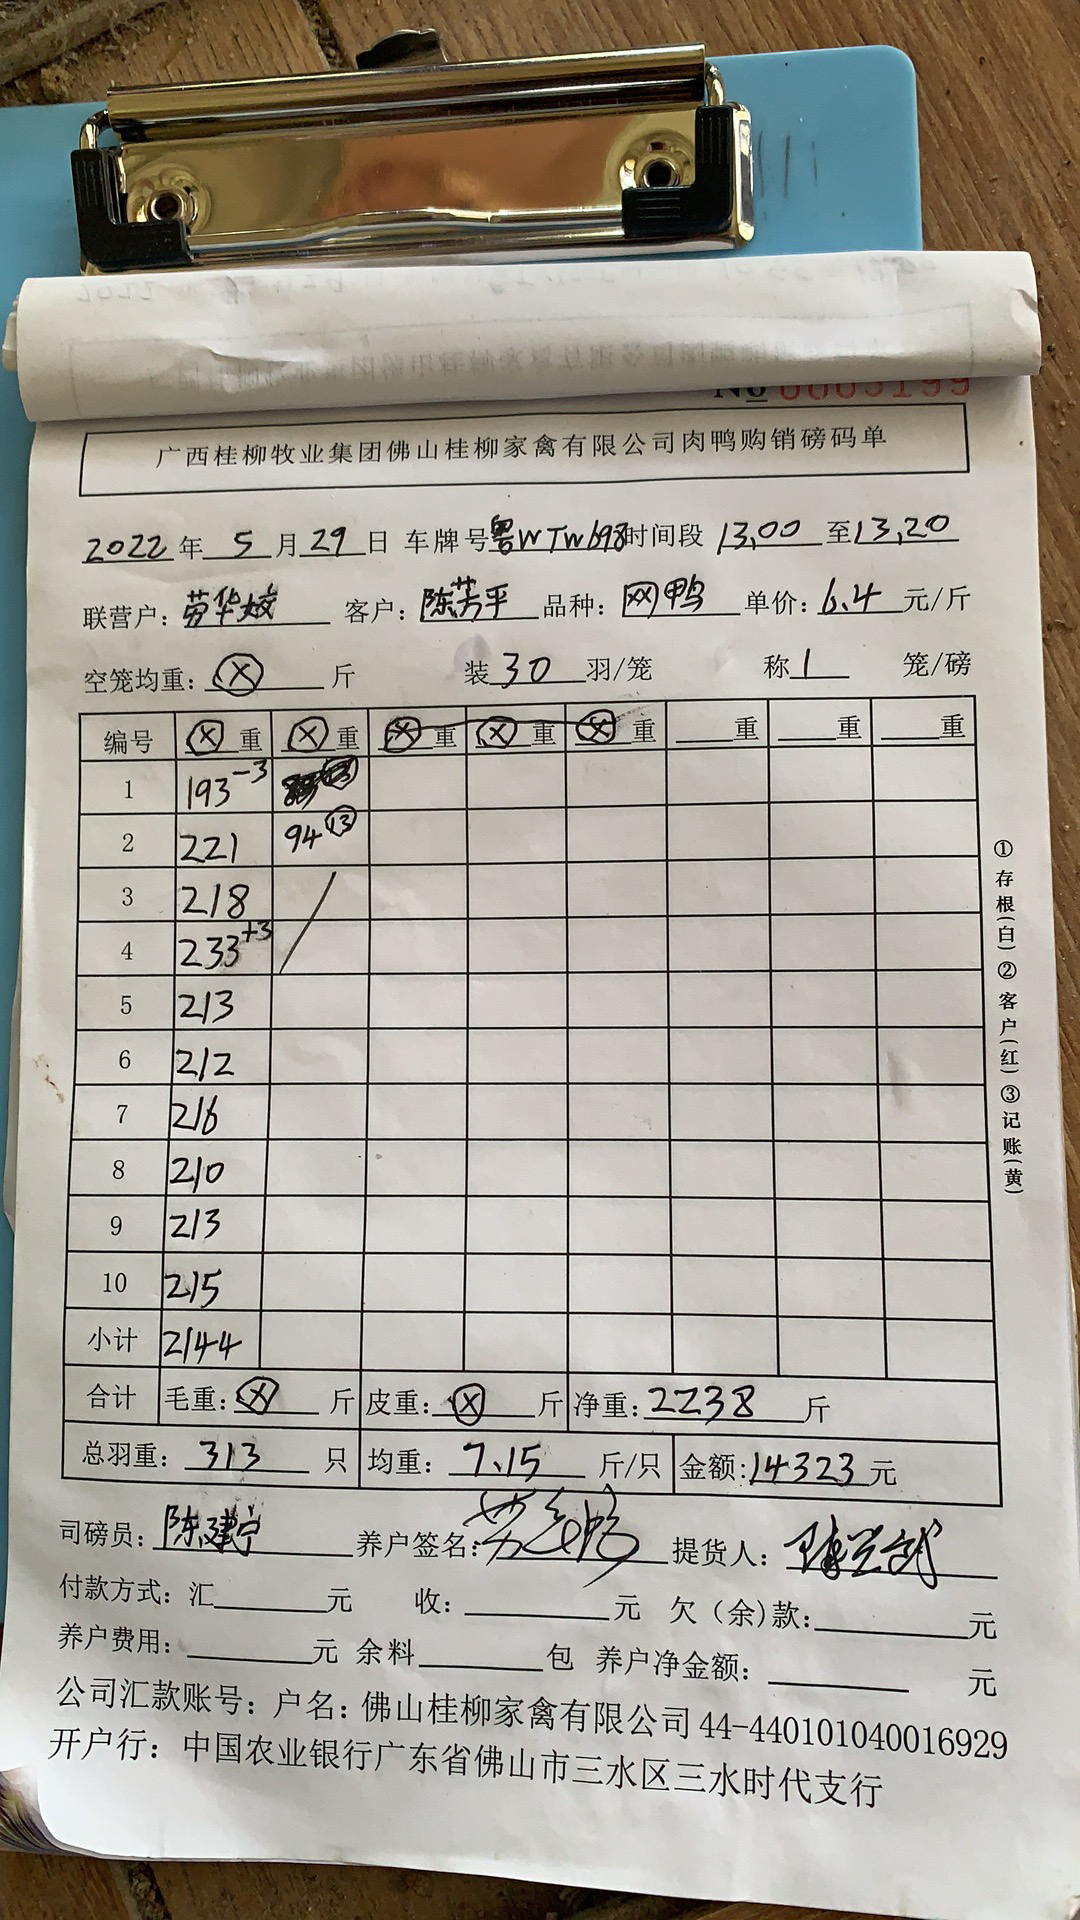 No 0005199
广西桂柳牧业集团佛山桂柳家禽有限公司肉鸭购销磅码单
2022年 5月29日 车牌号粤WTW698时间段 13,00 至13,20
联营户: 劳华姣 客户: 陈芳平 品种: 网鸭 单价: 6.4 元/斤
空笼均重: X 斤 装 30 羽/笼 称 1 笼/磅
编号 X重 X重 X重 X重 X重 重 重 重
1 193-3
2 221 94 13
3 218
4 233+3
5 213
6 212
7 216
8 210
9 213
10 215
小计 2144
合计 毛重: X 斤 皮重: X 斤 净重: 2238 斤
总羽重: 313 只 均重: 7.15 斤/只 金额:14323元
司磅员: 陈建宁 养户签名: 提货人:
付款方式: 汇 元 收: 元 欠(余)款: 元
养户费用: 元 余料 包 养户净金额: 元
公司汇款账号: 户名: 佛山桂柳家禽有限公司 44-440101040016929
开户行: 中国农业银行广东省佛山市三水区三水时代支行
①存根(白)②客户(红)③记账(黄)